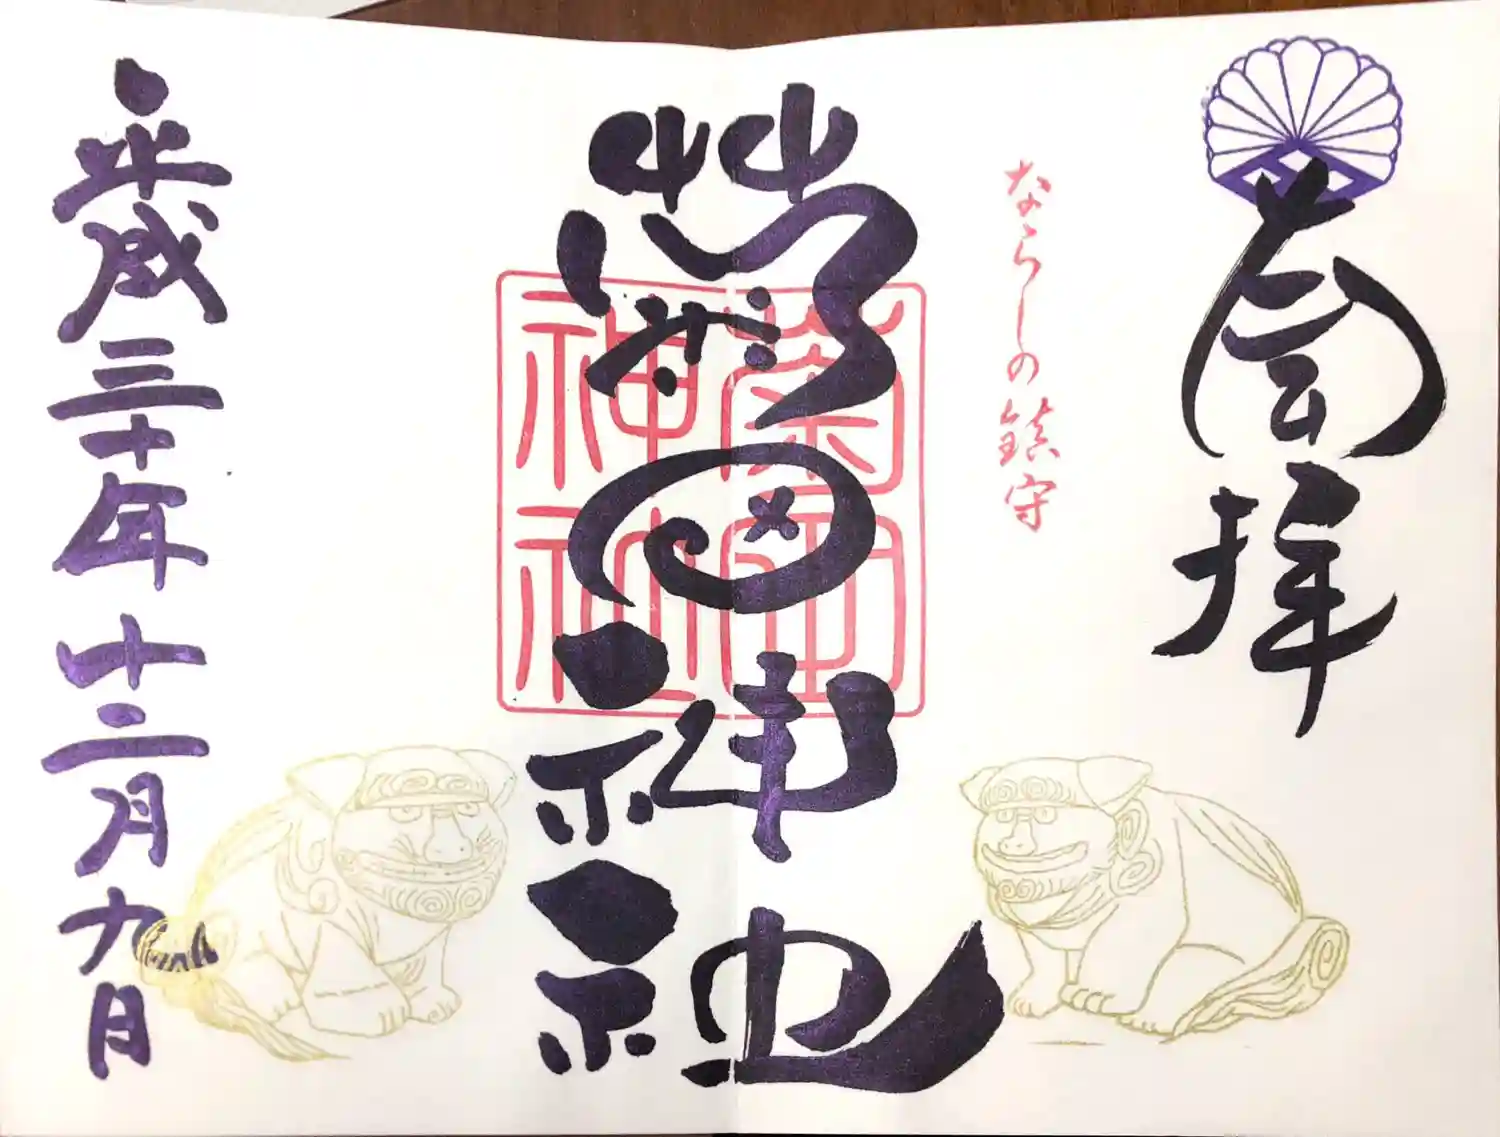 奉拝
ならしの鎮守
菊田神社
菊田
神社
平成三十年十二月九日